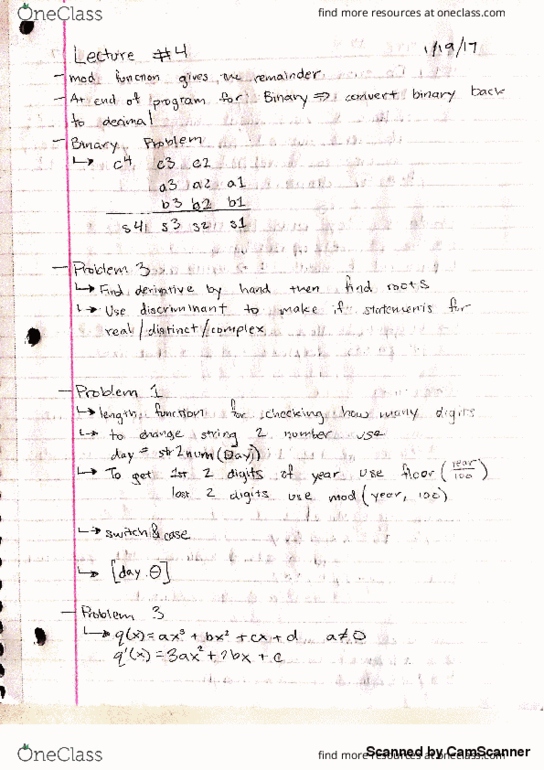 OneClass
find more resources at oneclass.com
Lecture #4 1/19/17
- mod function gives the remainder
- At end of program for Binary ⇒ convert binary back
to decimal
- Binary Problem
↳ c4 c3 c2
a3 a2 a1
b3 b2 b1
s4 s3 s2 s1
- Problem 3
↳ Find derivative by hand then find roots
↳ Use discriminant to make if statements for
real/distinct/complex
- Problem 1
↳ length function for checking how many digits
↳ to change string 2 number use
day = str2num(Day))
↳ To get 1st 2 digits of year use floor (year/100)
last 2 digits use mod (year, 100)
↳ switch & case
↳ [day 0]
- Problem 3
↳ q(x) = ax³ + bx² + cx + d a≠0
q'(x) = 3ax² + 2bx + c
OneClass
find more resources at oneclass.com
Scanned by CamScanner